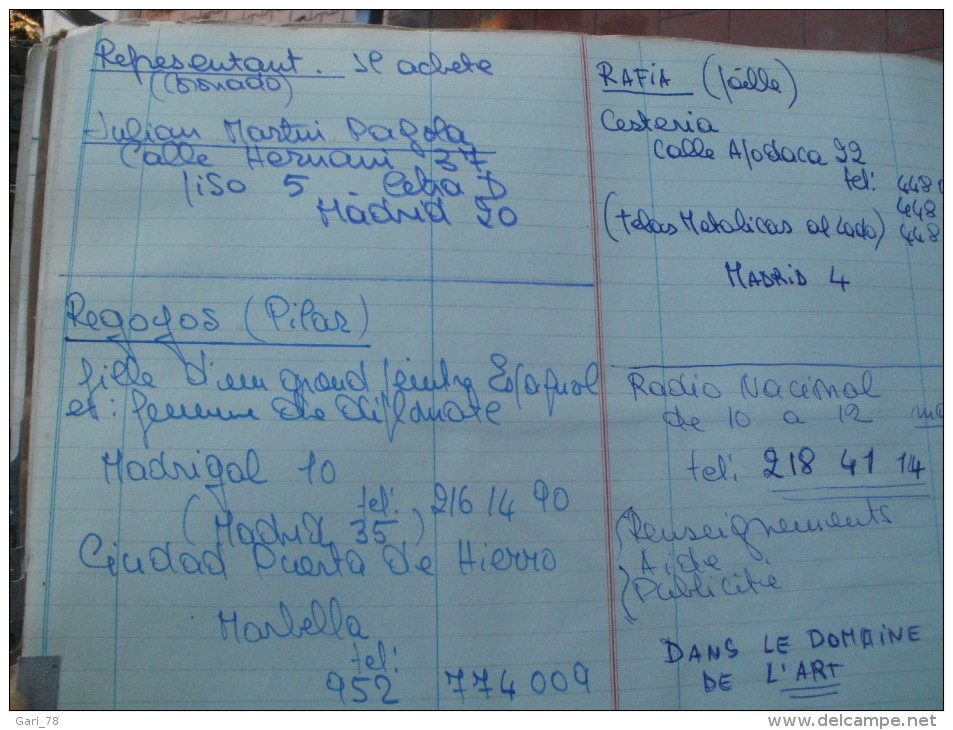 Representant. Il achete
(Coronado)
Julian Martin Pagola
Calle Hernani 37
Piso 5 - Letra D
Madrid 20
Regoyos (Pilar)
fille d'un grand peintre Espagnol
et: femme de diplomate
Madrigal 10
tel: 216 14 90
(Madrid 35)
Ciudad Puerta de Hierro
Marbella
tel:
952 774009
RAFIA (paille)
Cesteria
Calle Apodaca 22
tel: 448
448
(telas Metalicas al lado) 448
MADRID 4
Radio Nacional
de 10 a 12
tel: 218 41 14
Renseignements
Aide
Publicité
DANS LE DOMAINE
DE L'ART
Gari_78
www.delcampe.net